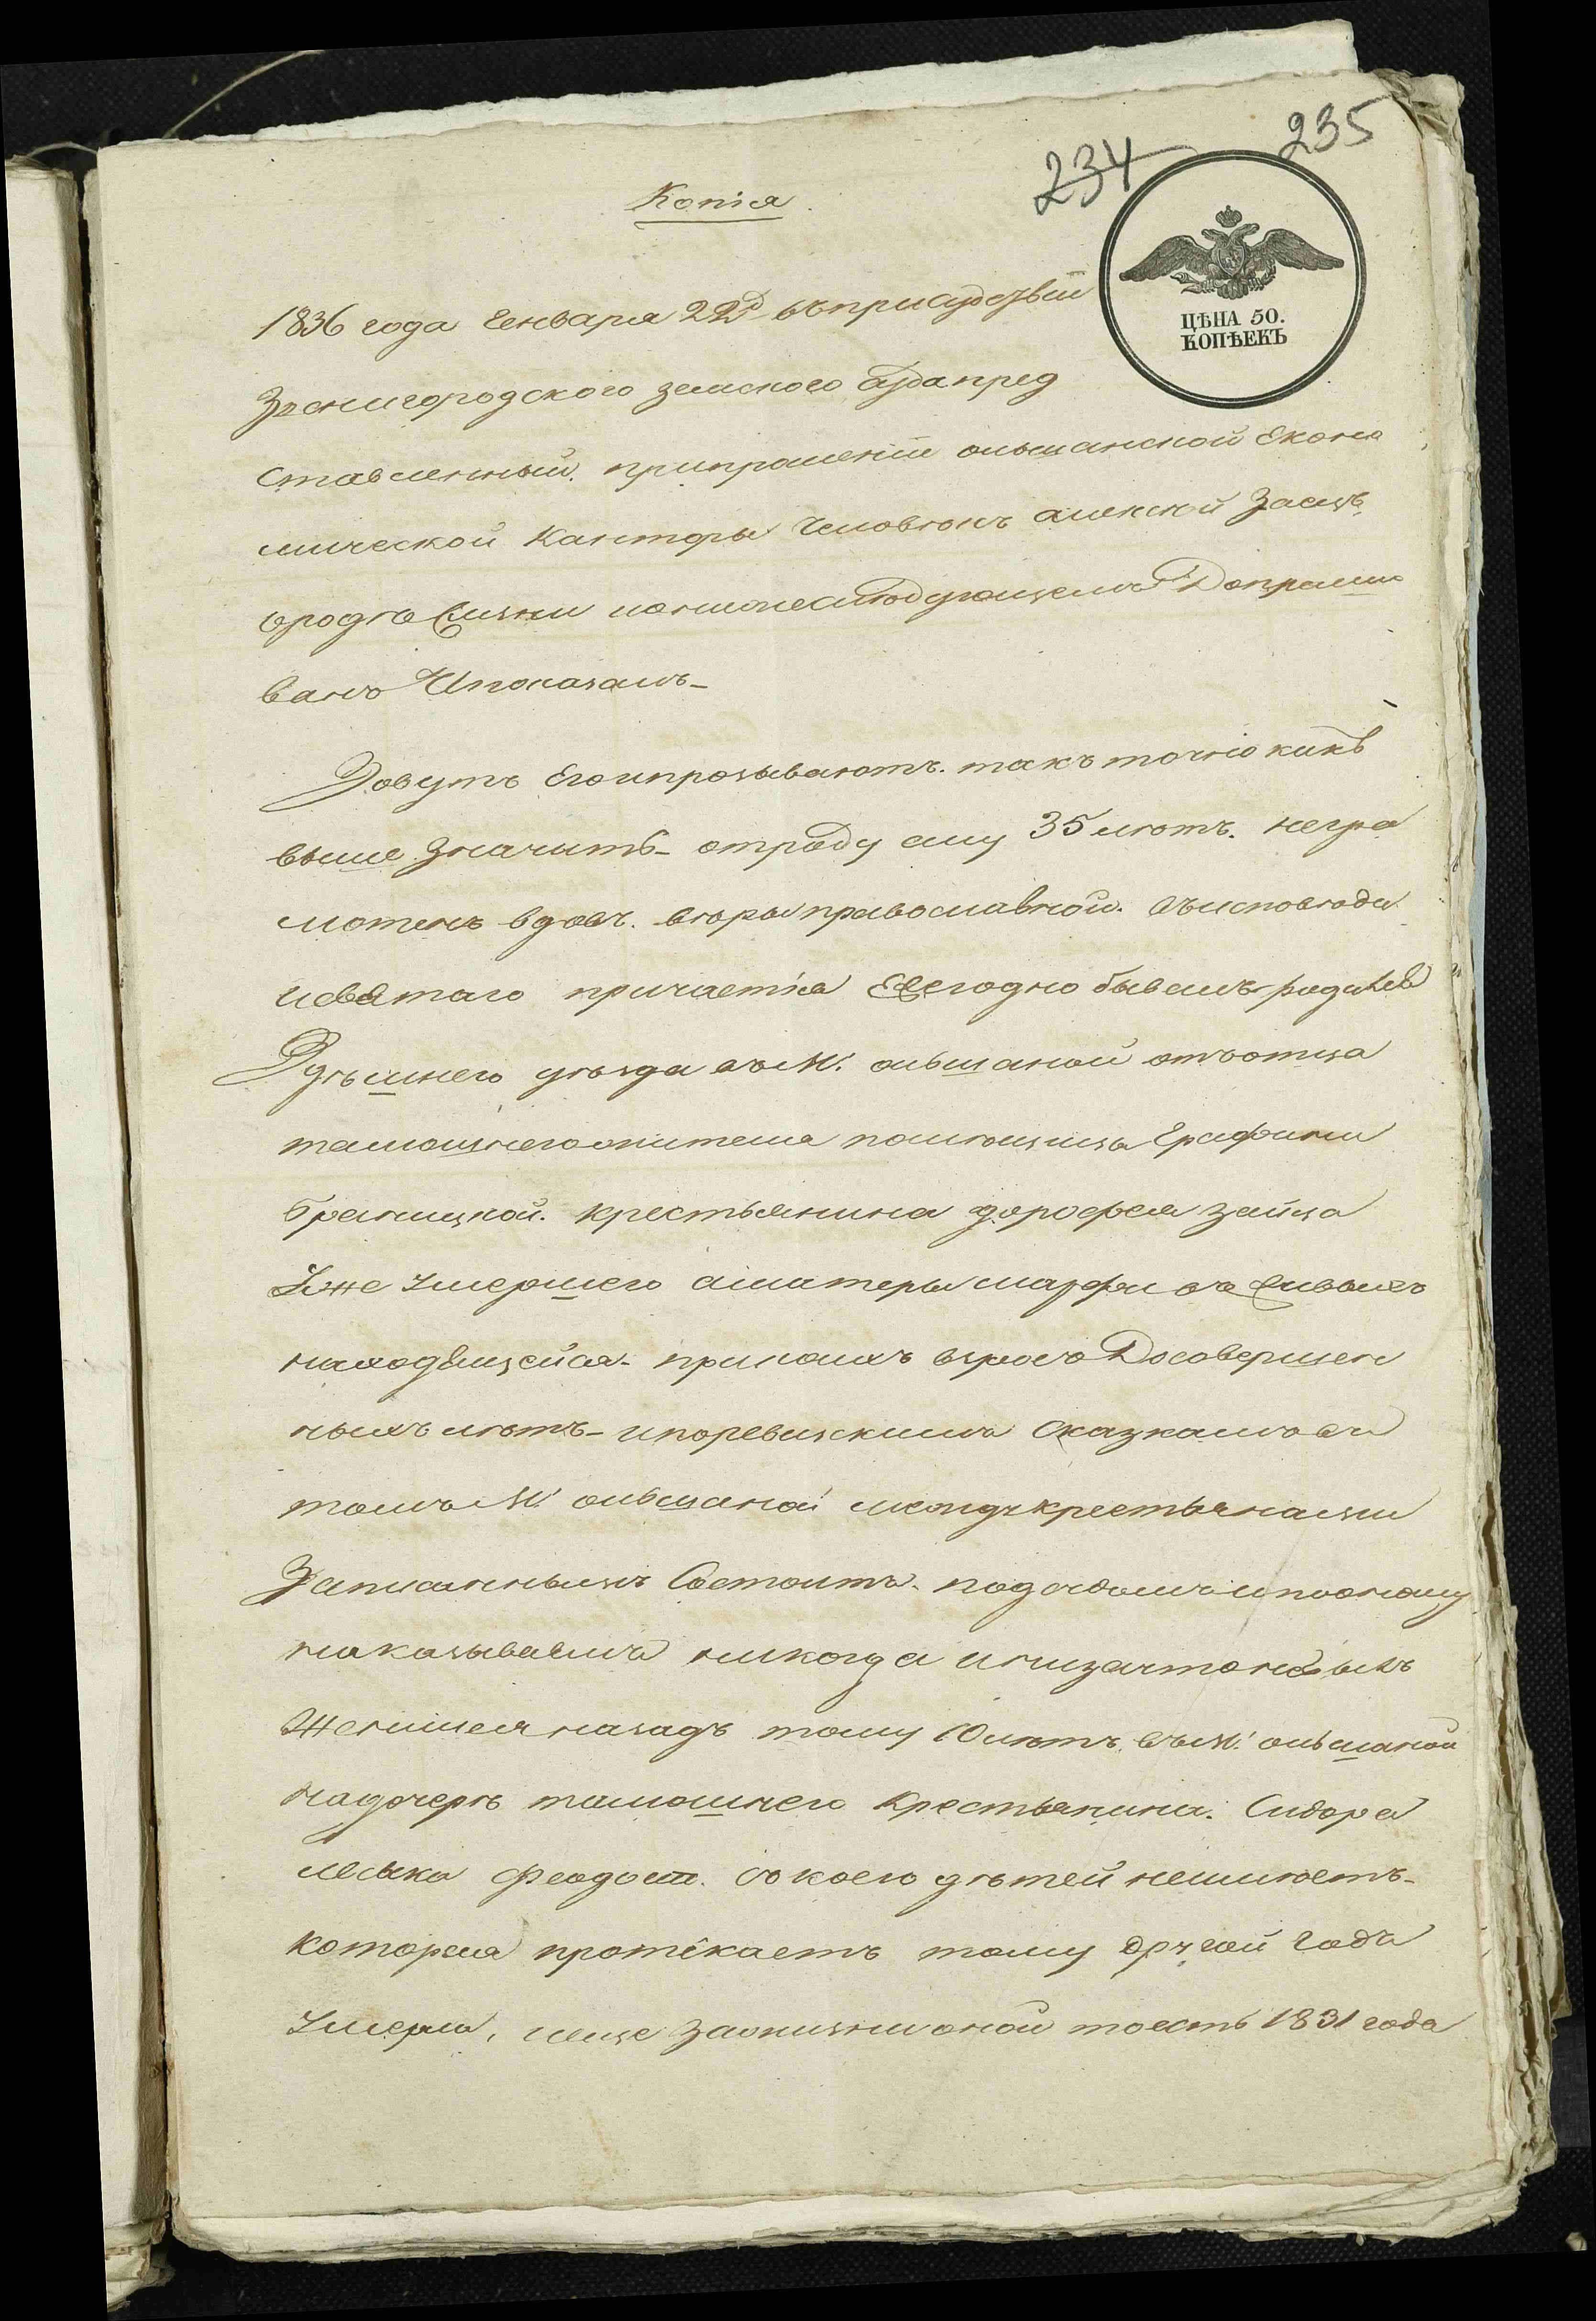 234 235
Копія
ЦѢНА 50.
КОПѢЕКЪ
1836 года Генваря 22д въприсудствіи
Звенигородского земского суда пред
ставленный. припрошеніи ольшанской Еконо
мической Канторы Человѣкъ алексей Заецъ
вродѣ Симъ допраши
ванъ Ипоказалъ-
Зовутъ Егоипрозываютъ. такъ точно какъ
выше Значитъ- отроду ему 35 лѣтъ. негра
мотенъ вдовъ. вѣры православной. выисповѣди
исвятаго причастія Ежегодно бывалъ родился
Здѣшнего уѣзда въ М. ольшаной отъотца
тамошнегожителя помѣщицы Графини
браницкой. крестьянина дорофея зайца
Уже Умершего аматеры марфи въживыхъ
находящейся- прикоихъ взросъ Досовершен
ныхъ лѣтъ- иповревизскимъ сказкамъ въ
томъ М ольшаной между крестьянами
Записаннымъ Состоитъ. подсудомъ
наказываемъ никогда инизачто небылъ
Женился назадъ тому 10 лѣтъ. въ М. ольшаной
надочерѣ тамошнего Крестьянина. Сидора
Феодосіи. скоею дѣтей неимѣетъ-
которая протекаетъ тому другой годъ
Умерла, иеще зажизни оной тоесть 1831 года